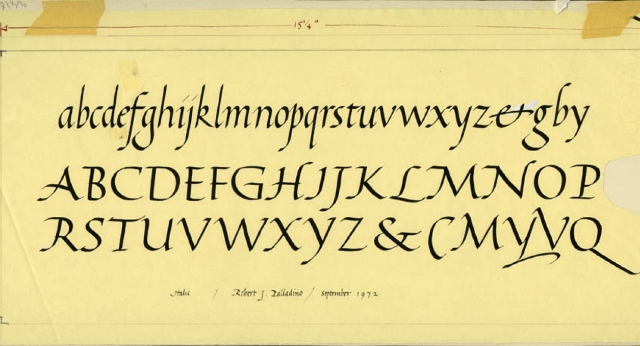 15 1/4"
abcdefghijklmnopqrstuvwxyz&gby
ABCDEFGHIJKLMNOP
RSTUVWXYZ&CMYVQ
Italic / Robert J. Palladino / September 1972